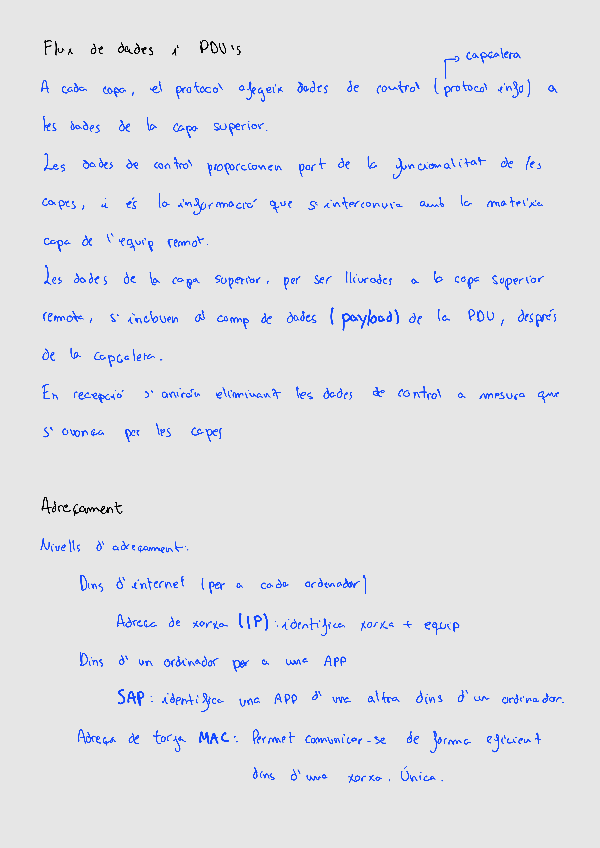 Flux de dades i PDU's
→ capçalera
A cada capa, el protocol afegeix dades de control (protocol info) a
les dades de la capa superior.
Les dades de control proporcionen part de la funcionalitat de les
capes, i és la informació que s'intercanvia amb la mateixa
capa de l'equip remot.
Les dades de la capa superior, per ser lliurades a la capa superior
remota, s'inclouen al camp de dades (payload) de la PDU, després
de la capçalera.
En recepció s'aniràn eliminant les dades de control a mesura que
s'avança per les capes
Adreçament
Nivells d'adreçament:
Dins d'internet (per a cada ordinador)
Adreça de xarxa (IP): identifica xarxa + equip
Dins d'un ordinador per a una APP
SAP: identifica una APP d'una altra dins d'un ordinador.
Adreça de MAC: Permet comunicar-se de forma eficient
dins d'una xarxa. Única.